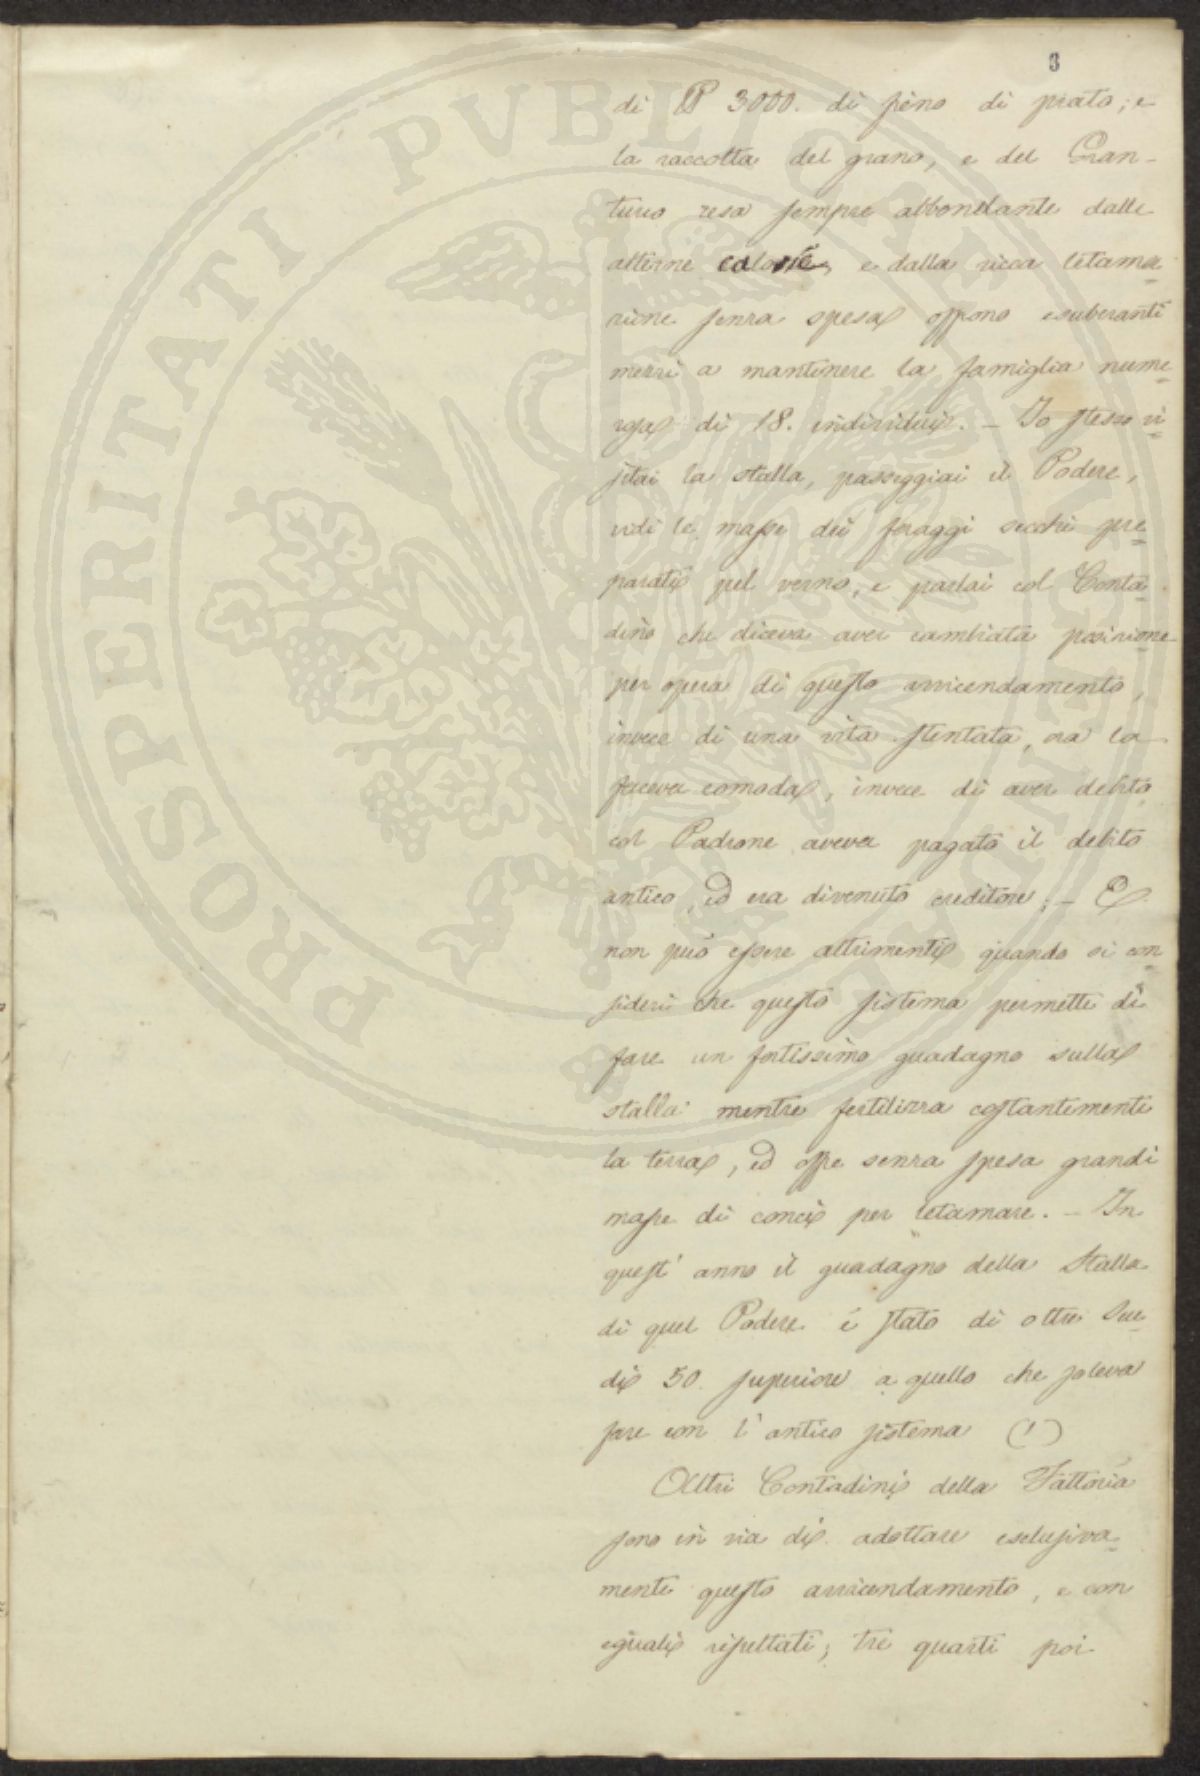 3
di ℔ 3000. di fieno di prato; e
la raccolta del grano, e del Gran-
turco resa sempre abbondante dalle
alterne calorie, e dalla ricca letama
zione senza spesa offrono esuberanti
mezzi a mantenere la famiglia nume
rosa di 18. individui. – Io stesso vi
sitai la stalla, passeggiai il Podere,
vidi le masse dei foraggi secchi pre
parati pel verno, e parlai col Conta
dino che diceva aver cambiata posizione
per opera di questo avvicendamento,
invece di una vita stentata, ora la
faceva comoda, invece di aver debito
col Padrone aveva pagato il debito
antico, ed era divenuto creditore; – E
non può essere altrimenti quando si con
sideri che questo sistema permette di
fare un fortissimo guadagno sulla
stalla mentre fertilizza costantemente
la terra, ed offre senza spesa grandi
masse di concio per letamare. – In
quest' anno il guadagno della Stalla
di quel Podere é stato di oltre Scu
di 50 superiore a quello che soleva
fare con l'antico sistema (1)
Altri Contadini della Fattoria
sono in via di adottare esclusiva
mente questo avvicendamento, e con
eguali risultati; tre quarti poi
PROSPERITATI PVBLICAE